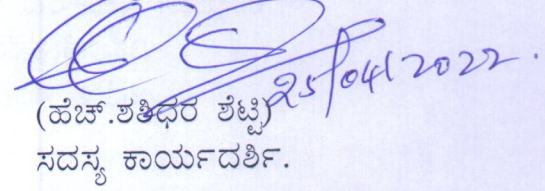 25/04/2022.
(ಹೆಚ್.ಶಶಿಧರ ಶೆಟ್ಟಿ)
ಸದಸ್ಯ ಕಾರ್ಯದರ್ಶಿ.